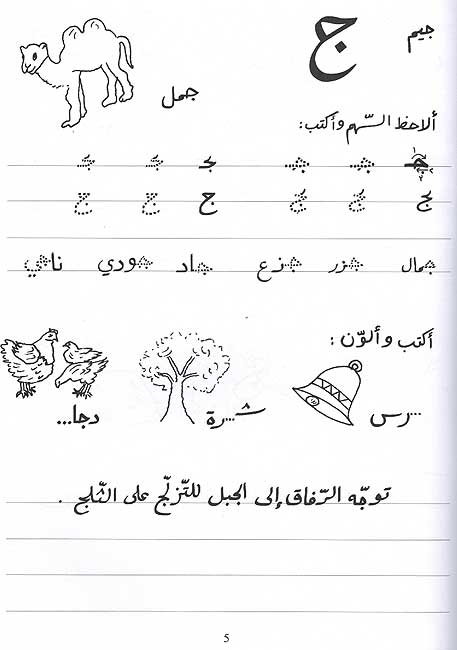 جيم ج
جمل
ألاحظ السّهم وأكتب:
جـ جـ جـ جـ جـ جـ
ـج ـج ـج ج ج ج
جمال جزر جزع جاد جودي ناجي
أكتب وألوّن :
...رس شـ...رة دجا...
توجّه الرّفاق إلى الجبل للتّزلّج على الثّلج .
5